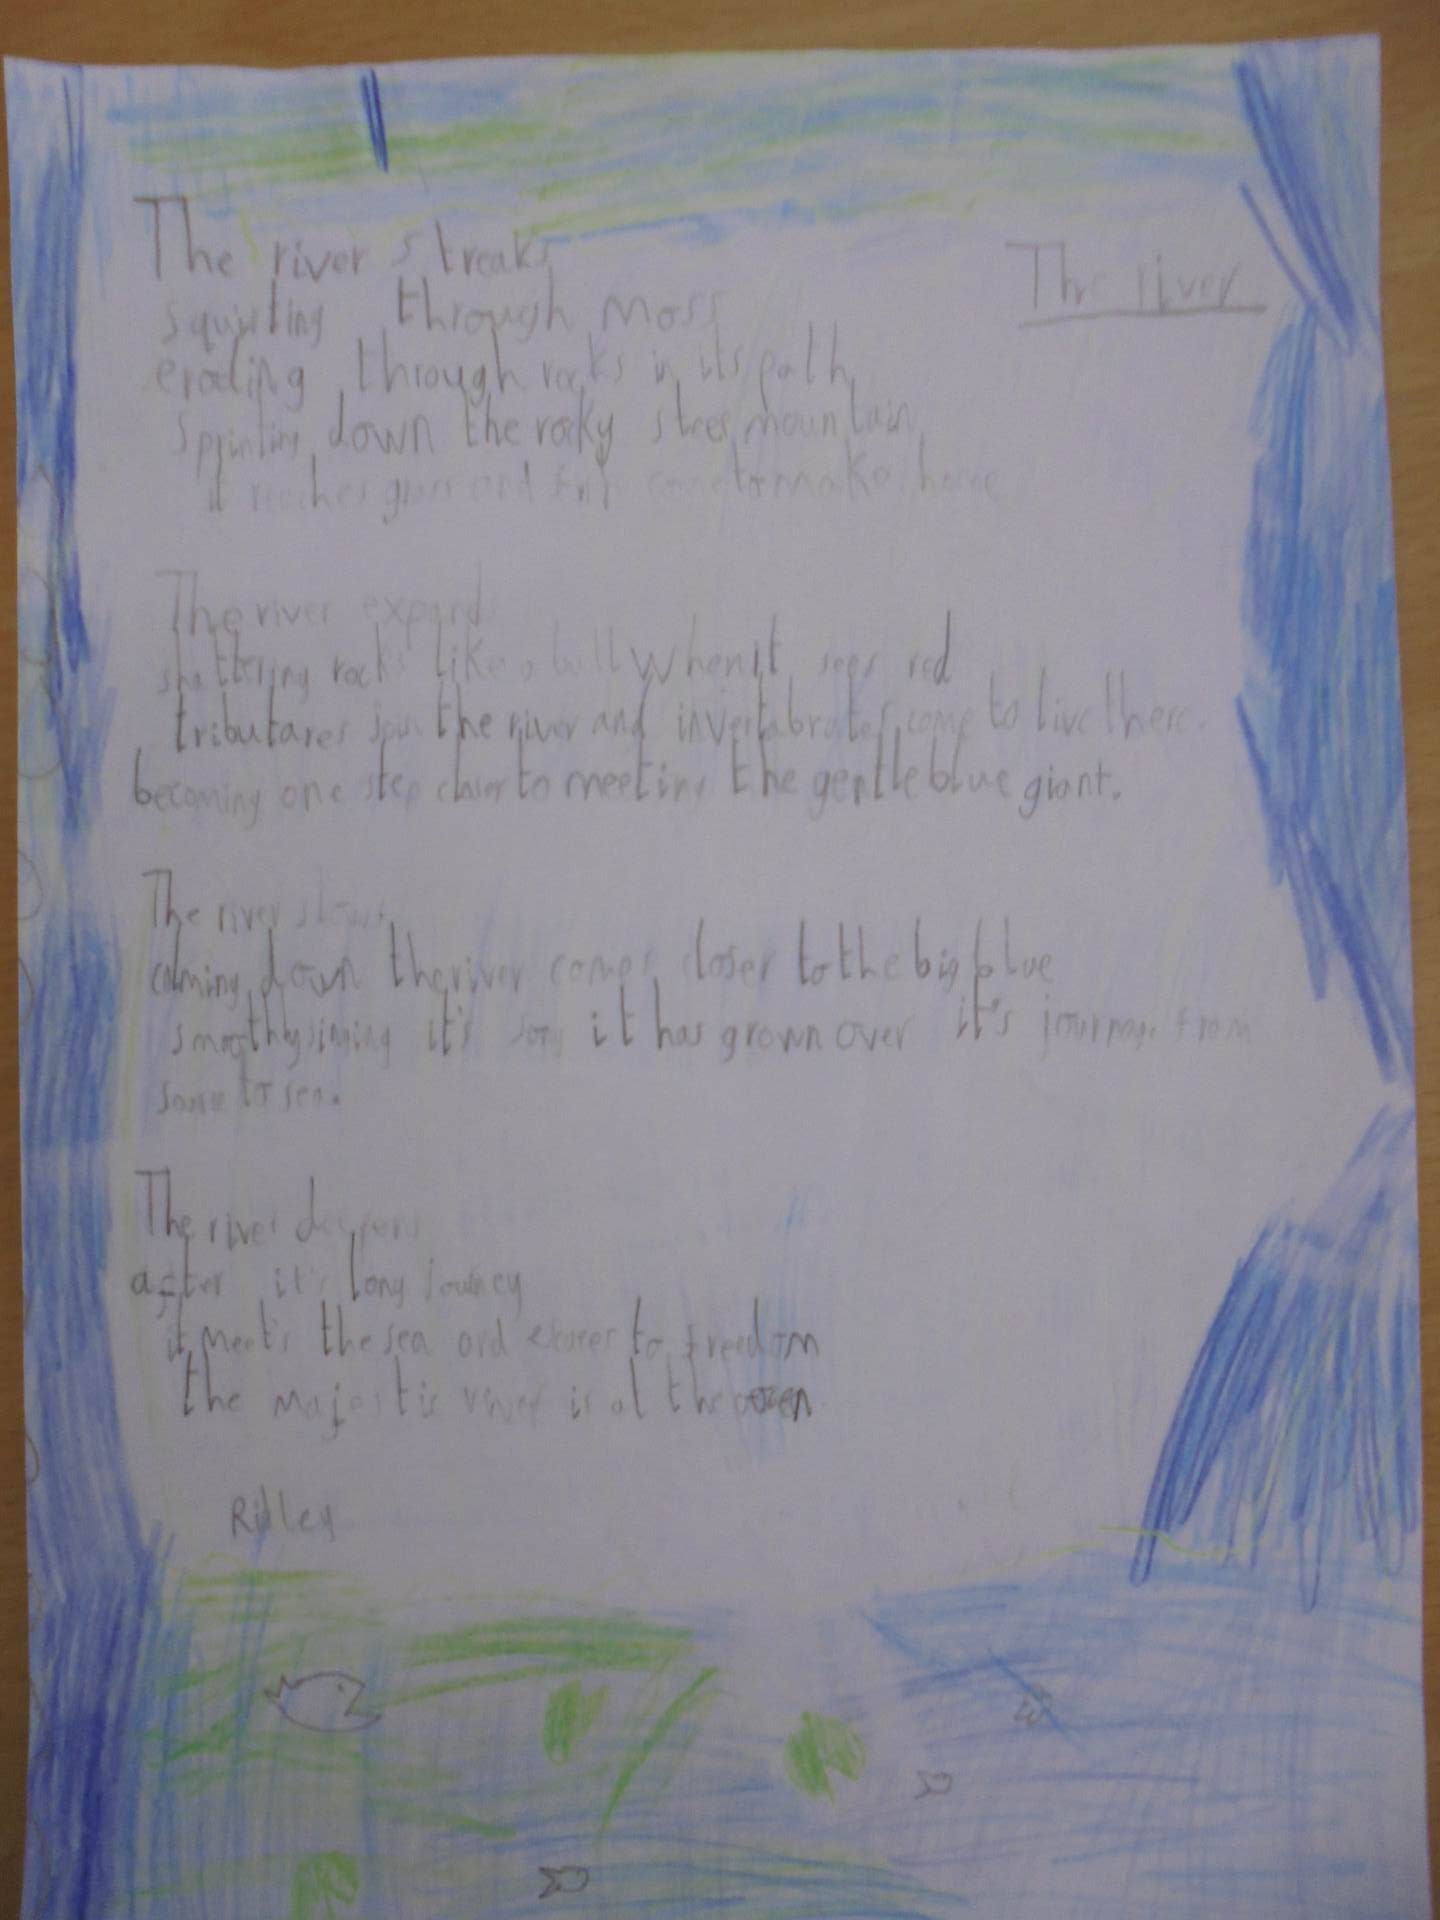 The river
The river streaks
squirting through moss
eroding through rocks in its path
sprinting down the rocky steep mountain
it reaches grass and come to make home
The river expand
shattering rocks like a bull when it sees red
tributares join the river and invertabrates come to live there.
becoming one step closer to meeting the gentle blue giant.
The river slows
calming down the river comes closer to the big blue
smoothly singing it's song it has grown over it's journey from
to sea.
The river deepens
after it's long journey
it meets the sea and to freedom
the majestic river is at the
Ridley